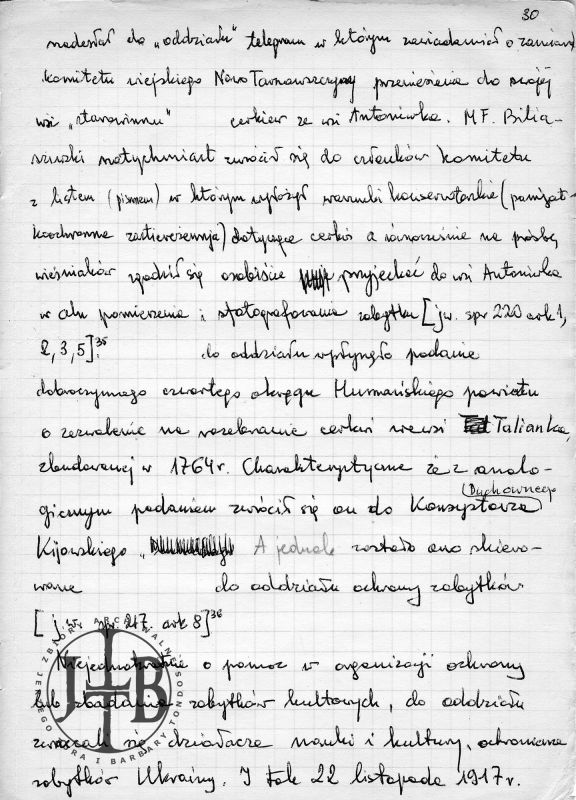 30
nadesłał do „oddziału" telegram w którym zawiadamiał o zamiarze
komitetu wiejskiego Nowo Tarnawszczyzny przeniesienia do swojej
wsi „starowinnu" cerkiew ze wsi Antoniwka. M.F. Bilia-
szwski natychmiast zwrócił się do członków komitetu
z listem (pismem) w którym wyłożył warunki konserwatorskie (pamjat-
koochronne zastiereżennja) dotyczące cerkwi a równocześnie na prośbę
wieśniaków zgodził się osobiście przyjechać do wsi Antoniwka
w celu pomierzenia i sfotografowania zabytku [jw. spr 220 ark 1,
2, 3, 5].35 do oddziału wpłynęło podanie
dobroczynnego czwartego okręgu Humańskiego powiatu
o zezwolenie na rozebranie cerkwi we wsi Talianka,
zbudowanej w 1764 r. Charakterystyczne że z analo-
gicznym podaniem zwrócił się on do Konsystorza Duchownego
Kijowskiego A jednak zostało ono skiero-
wane do oddziału ochrony zabytków
[j.w. spr. 217. ark 8]36
Niejednokrotnie o pomoc w organizacji ochrony
lub zbadania zabytków kultowych, do oddziału
zwracali się działacze nauki i kultury, ochrania
zabytków Ukrainy. I tak 22 listopada 1917 r.
ZBIORY ARCHIWALNE
JERZEGO
I BARBARY TONDOSÓW
JTB